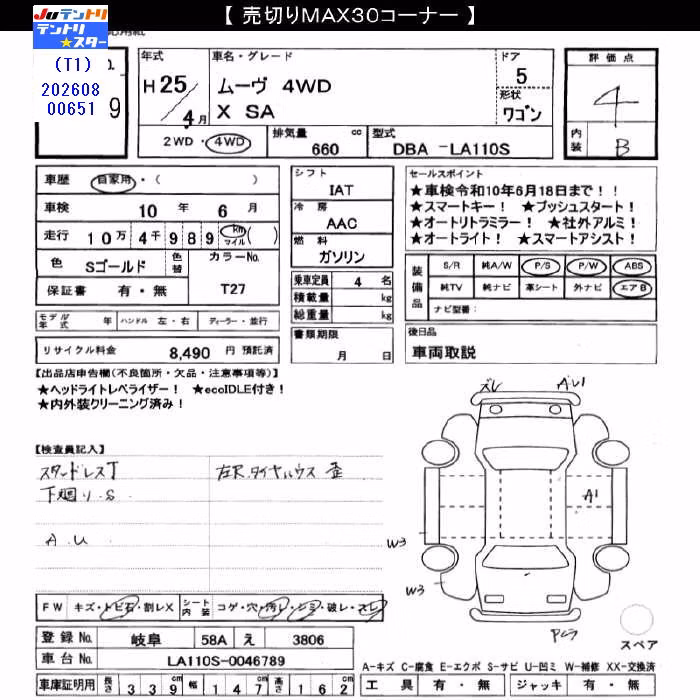 【 売切りMAX30コーナー 】
JUテントリ
テントリ
★スター
(T1)
202608
00651
9
年式
H 25/4月
車名・グレード
ムーヴ 4WD
X SA
ドア
5
形状
ワゴン
評価点
4
内装
B
2WD・4WD
排気量
660 cc
型式
DBA -LA110S
車歴 自家用・( )
車検 10 年 6 月
走行 10万 4千 9 8 9 km マイル ( )
色 Sゴールド 色替
カラーNo.
T27
保証書 有・無
モデル年式 年 ハンドル 左・右 ディーラー・並行
リサイクル料金 8,490 円 預託済
シフト
IAT
冷房
AAC
燃料
ガソリン
乗車定員 4 名
積載量 kg
総重量 kg
書類期限
月 日
セールスポイント
★車検令和10年6月18日まで！！
★スマートキー！ ★プッシュスタート！
★オートリトラミラー！ ★社外アルミ！
★オートライト！ ★スマートアシスト！
装備品
S/R 純A/W P/S P/W ABS
純TV 純ナビ 革シート 外ナビ エアB
ナビ型番:
後日品
車両取説
【出品店申告欄(不良箇所・欠品・注意事項等)】
★ヘッドライトレベライザー！ ★ecoIDLE付き！
★内外装クリーニング済み！
【検査員記入】
スタッドレスT
下廻り.S
A.U
ズレ
A1
A1
W3
W3
FW キズ・トビ石・割レX
シート内装 コゲ・穴・汚レ・シミ・破レ・スレ
登録No. 岐阜 58A え 3806
車台No. LA110S-0046789
車庫証明用 長さ 339cm 幅 147cm 高さ 162cm
スペア
A-キズ C-腐食 E-エクボ S-サビ U-凹ミ W-補修 XX-交換済
工具 有・無 ジャッキ 有・無